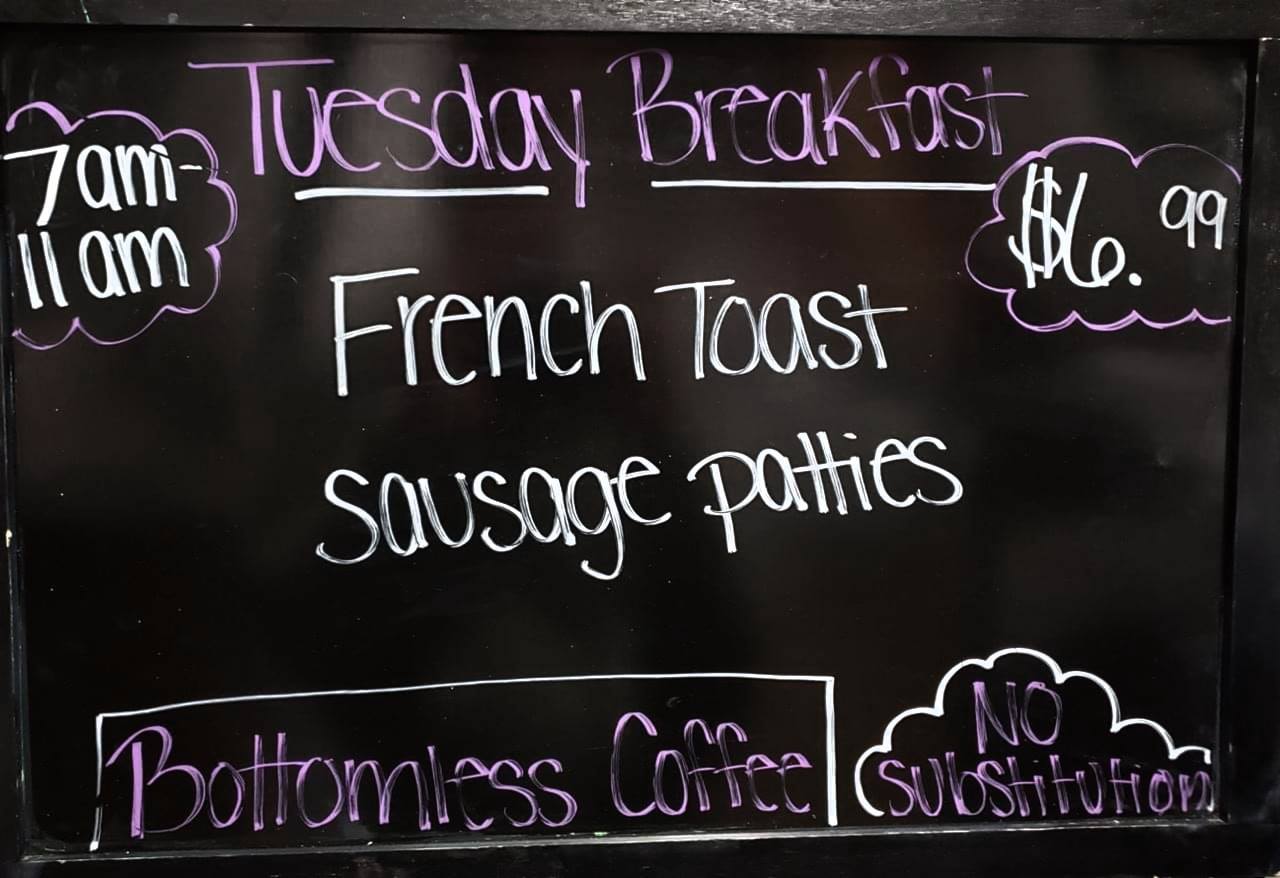 Tuesday Breakfast
7am-
11am
$6.99
French Toast
sausage patties
Bottomless Coffee
NO
substitution